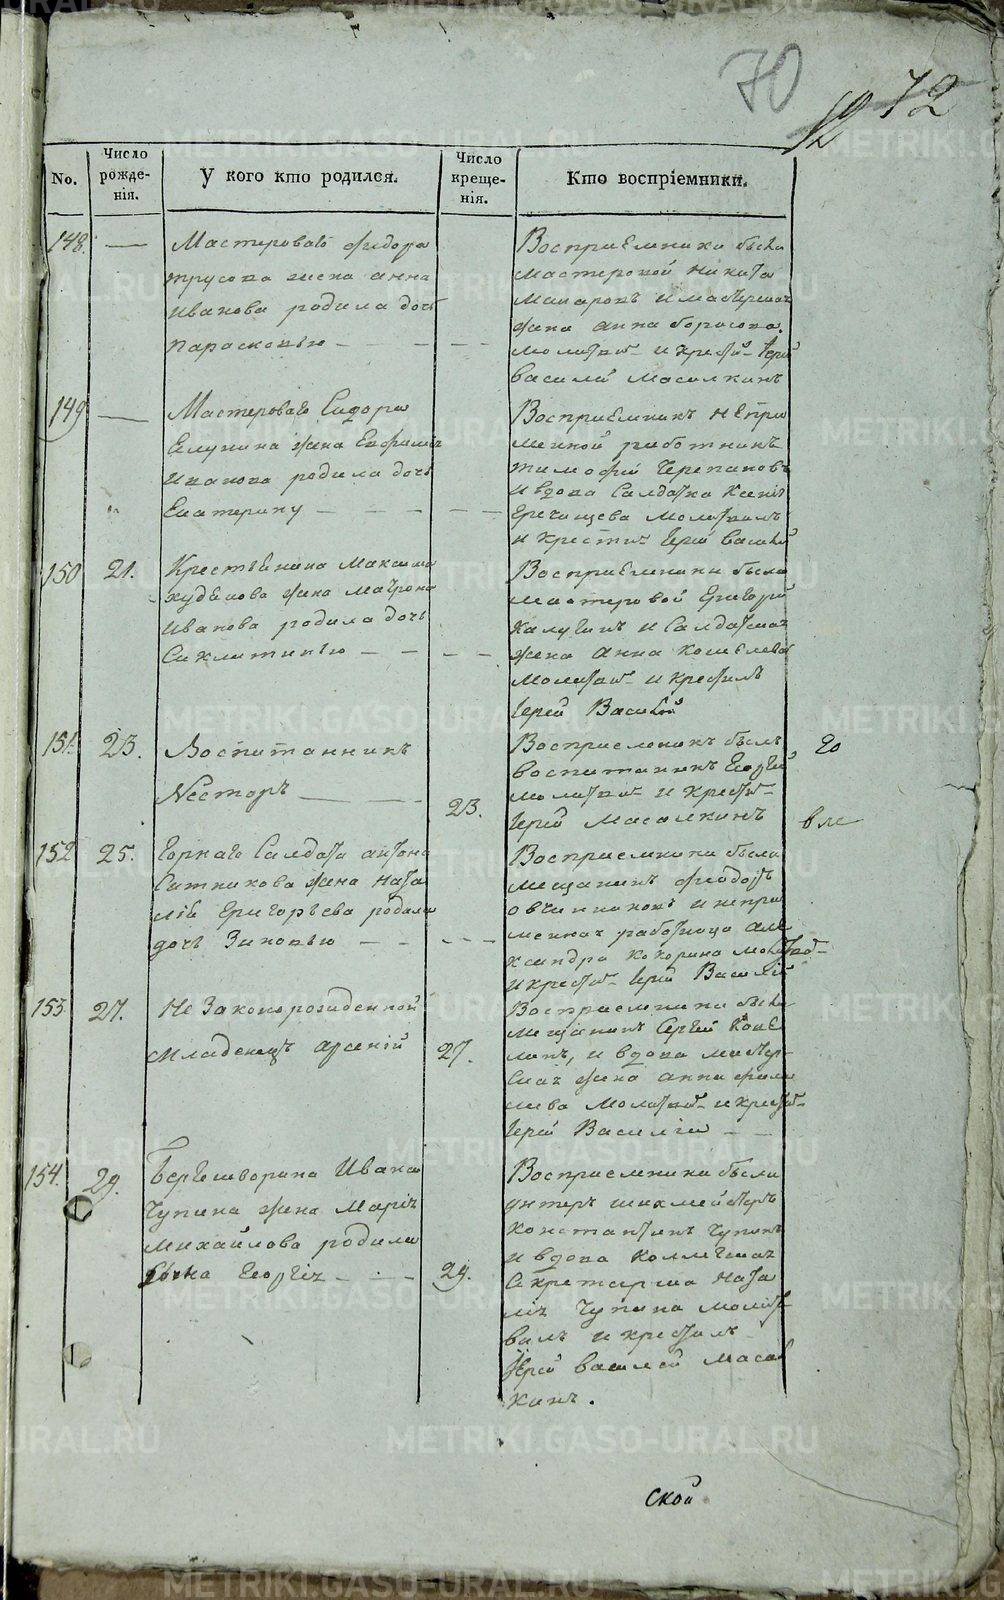 70
72
No.
Число рожде-нія.
У кого кто родился.
Число креще-нія.
Кто воспріемники.
148.
Мастероваго Федора
Трусова жена Анна
Иванова родила дочь
Парасковью
Восприемники были
мастеровой Никита
Макаровъ и мастерская
жена Анна Борисова.
Молитвов- и крести- Іерей
Василий Масалкинъ
149
Мастероваго Сидора
жена
Иванова родила дочь
Екатерину
Восприемникъ непре
менной работникъ
Тимофей Черепановъ
и вдова Салдатка
Молитвилъ
и крестил Іерей Василий
150
21.
Крестьянина Максима
жена Матрона
Иванова родила дочь
Восприемники были
мастеровой Григорий
Калугинъ и Салдатская
жена Анна
Молитвов- и крестилъ
Іерей Василий
151.
23.
Воспитанникъ
Несторъ
23.
Восприемникъ былъ
воспитанникъ Георгий
молитвов- и крести-
Іерей Масалкинъ
152
25.
Горнаго Салдата Антона
Ситникова жена Ната
лія Григорьева родила
дочь Зиновью
Восприемники были
мещанинъ Феодотъ
Овчинниковъ и непре
менная работница Але
ксандра Кокорина молитвов-
и крести- Іерей Василій
153
27.
Незаконорожденной
младенецъ Арсеній
27.
Восприемники были
мещанинъ Сергей
и вдова мастер-
ская жена Анна
Молитвов- и крести-
Іерей Василии
154.
29.
Берггешворина Ивана
Чупина жена Марія
Михайлова родила
сына Георгія
29.
Восприемники были
унтеръ шихмейстеръ
Константинъ Чупинъ
и вдова Коллежская
Секретарша Ната
лія Чупина молит
вилъ и крестилъ
Іерей Василей Масал
кинъ.
ской
METRIKI.GASO-URAL.RU